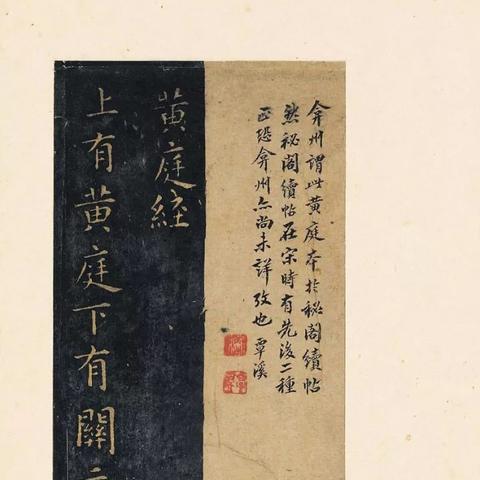 弇州謂此黃庭本於秘閣續帖
然秘閣續帖在宋時有先後二種
正恐弇州亦尚未詳攷也 覃溪
黃庭經
上有黃庭下有關